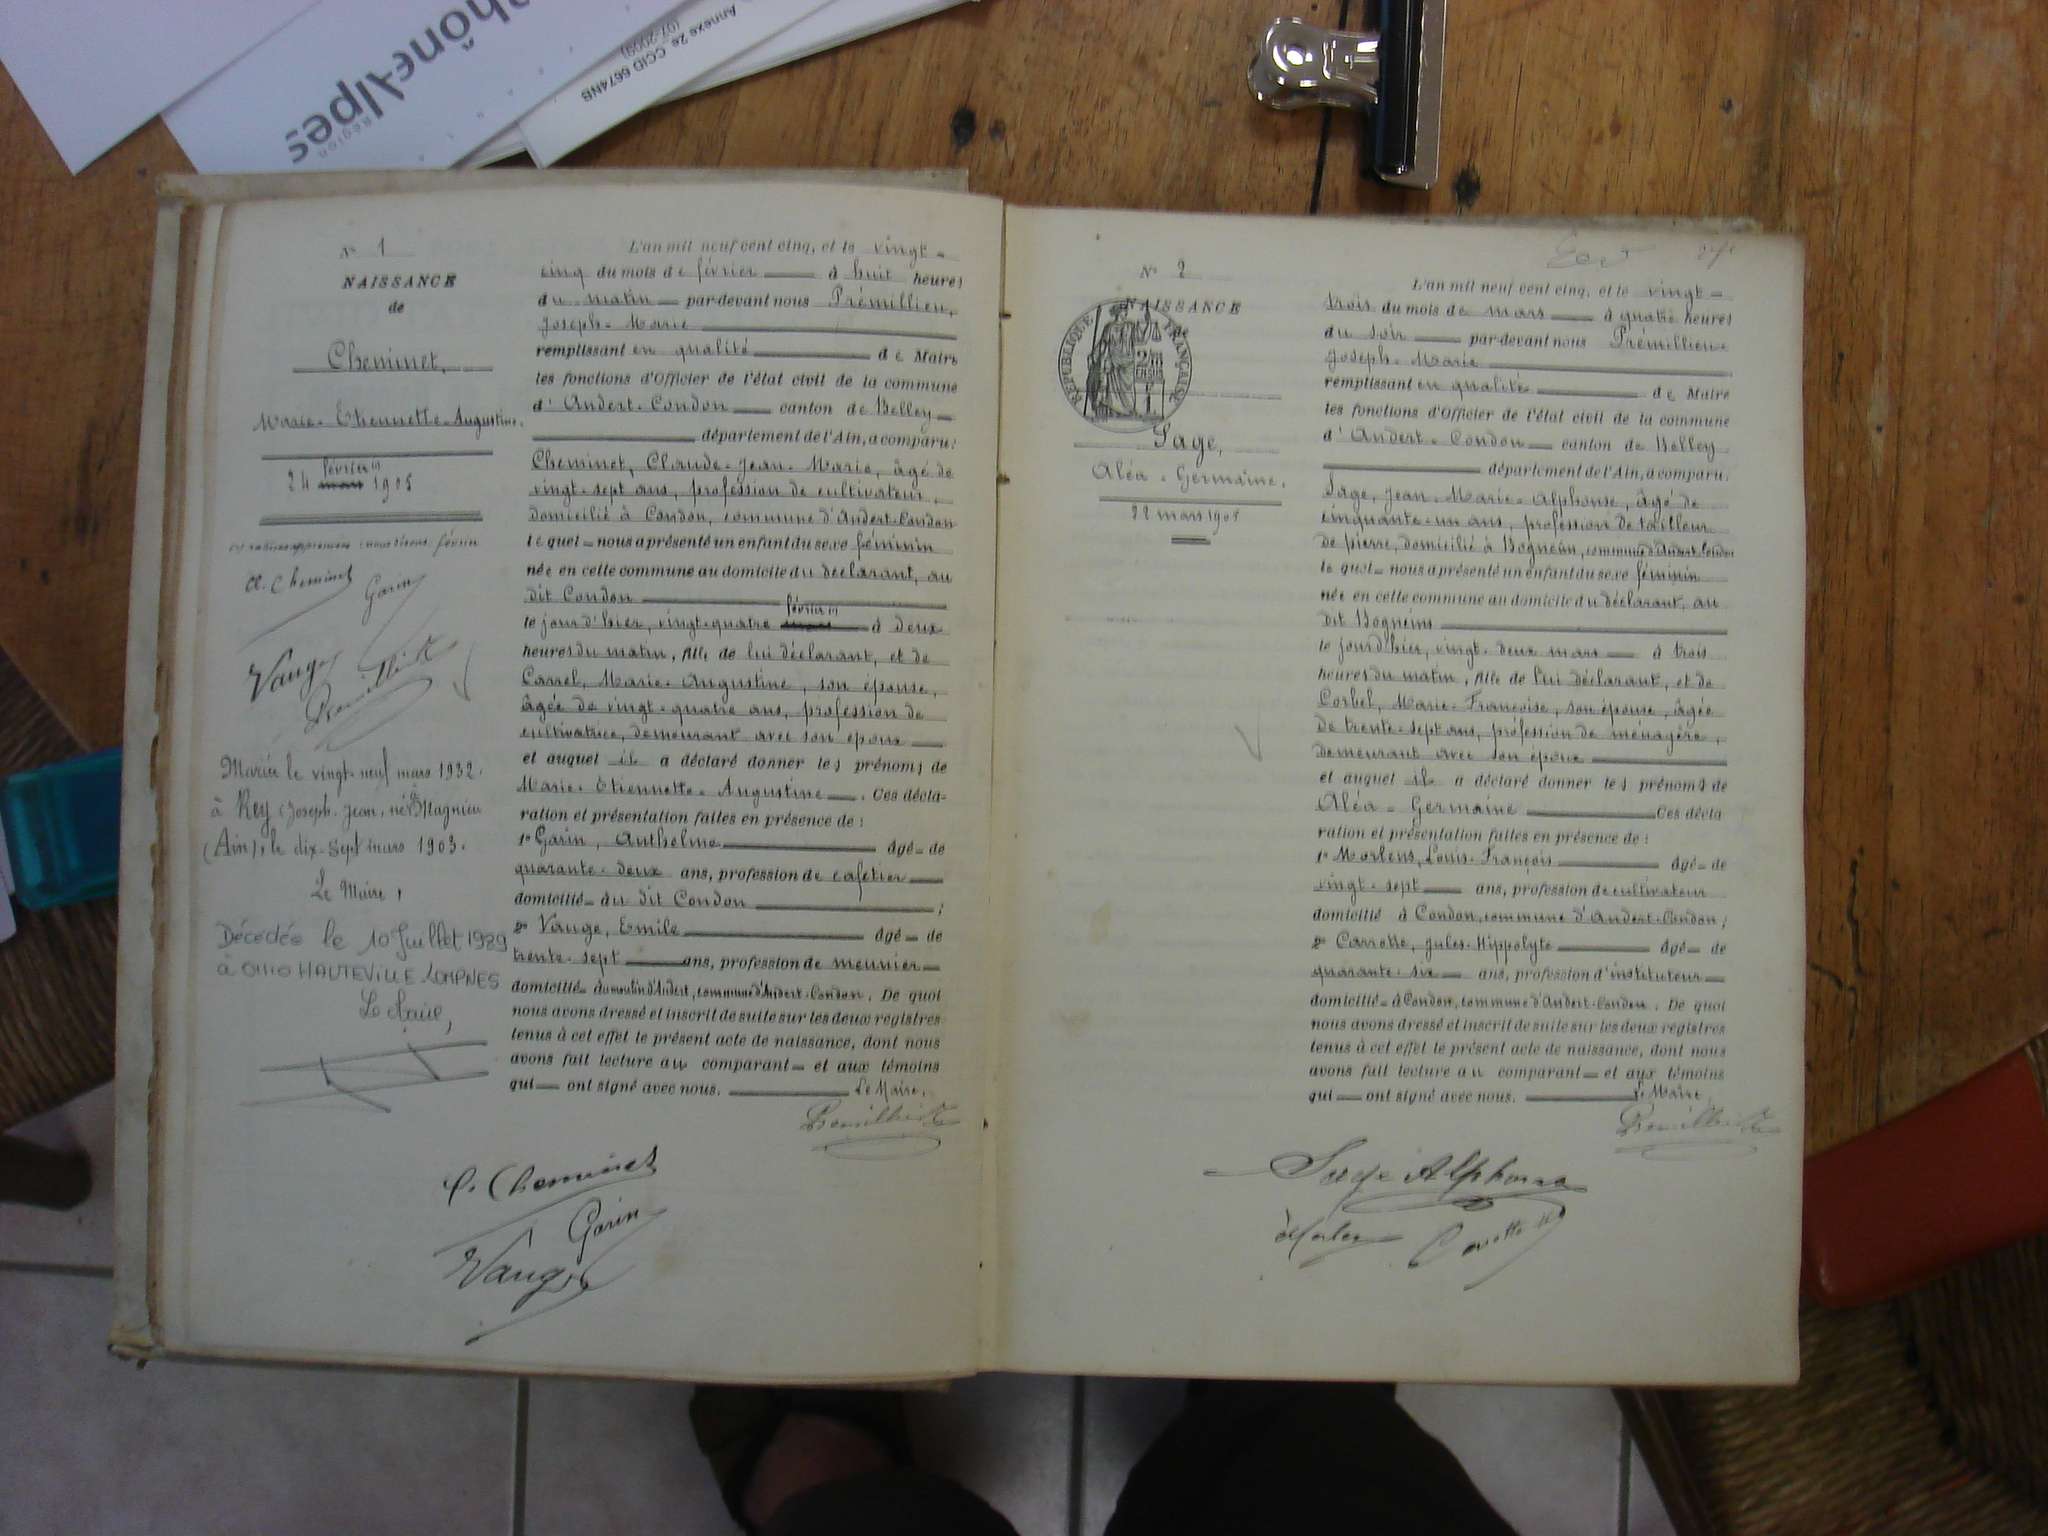 Rhône-Alpes
Région
Annexe 2e. CCID 6674NB
(07-2009)
N° 1
NAISSANCE
de
Cheminet,
Marie-Etiennette-Augustine.
24 mars février (1) 1905
février
Cl. Cheminet
Garin
Vauge
Mariée le vingt-neuf mars 1932.
à Rey (Joseph-Jean, né à Magnieu
(Ain), le dix-sept mars 1903.
Le Maire,
Décédée le 10 Juillet 1989
à 01110 HAUTEVILLE-LOMPNES
Le Maire,
L'an mil neuf cent cinq, et le vingt-
cinq du mois de février à huit heures
du matin par-devant nous Prémillieu,
Joseph-Marie
remplissant en qualité de Maire
les fonctions d'Officier de l'état civil de la commune
d'Andert-Condon canton de Belley
département de l'Ain, a comparu:
Cheminet, Claude-Jean-Marie, âgé de
vingt-sept ans, profession de cultivateur,
domicilié à Condon, commune d'Andert-Condon
lequel nous a présenté un enfant du sexe féminin
née en cette commune au domicile du déclarant, au
dit Condon
le jour d'hier, vingt-quatre mars février (1) à deux
heures du matin, fille de lui déclarant, et de
Carrel, Marie-Augustine, son épouse,
âgée de vingt-quatre ans, profession de
cultivatrice, demeurant avec son époux
et auquel il a déclaré donner les prénoms de
Marie-Etiennette-Augustine. Ces décla-
ration et présentation faites en présence de:
1° Garin, Anthelme âgé de
quarante-deux ans, profession de cafetier
domicilié au dit Condon;
2° Vauge, Emile âgé de
trente-sept ans, profession de meunier
domicilié au moulin d'Andert, commune d'Andert-Condon. De quoi
nous avons dressé et inscrit de suite sur les deux registres
tenus à cet effet le présent acte de naissance, dont nous
avons fait lecture au comparant et aux témoins
qui ont signé avec nous. Le Maire,
C. Cheminet
Garin
Vauge
N° 2
NAISSANCE
de
RÉPUBLIQUE FRANÇAISE
Sage,
Aléa-Germaine.
22 mars 1905
L'an mil neuf cent cinq, et le vingt-
trois du mois de mars à quatre heures
du soir par-devant nous Prémillieu-
Joseph-Marie
remplissant en qualité de Maire
les fonctions d'Officier de l'état civil de la commune
d'Andert-Condon canton de Belley
département de l'Ain, a comparu:
Sage, Jean-Marie-Alphonse, âgé de
cinquante-un ans, profession de tailleur
de pierre, domicilié à Bognens, commune d'Andert-Condon
lequel nous a présenté un enfant du sexe féminin
née en cette commune au domicile du déclarant, au
dit Bognens
le jour d'hier, vingt-deux mars à trois
heures du matin, fille de lui déclarant, et de
Corbel, Marie-Françoise, son épouse, âgée
de trente-sept ans, profession de ménagère,
demeurant avec son époux
et auquel il a déclaré donner les prénoms de
Aléa-Germaine Ces décla
ration et présentation faites en présence de:
1° Morlens, Louis-François âgé de
vingt-sept ans, profession de cultivateur
domicilié à Condon, commune d'Andert-Condon;
2° Carrotte, Jules-Hippolyte âgé de
quarante-six ans, profession d'instituteur
domicilié à Condon, commune d'Andert-Condon. De quoi
nous avons dressé et inscrit de suite sur les deux registres
tenus à cet effet le présent acte de naissance, dont nous
avons fait lecture au comparant et aux témoins
qui ont signé avec nous. Le Maire,
Sage Alphonse